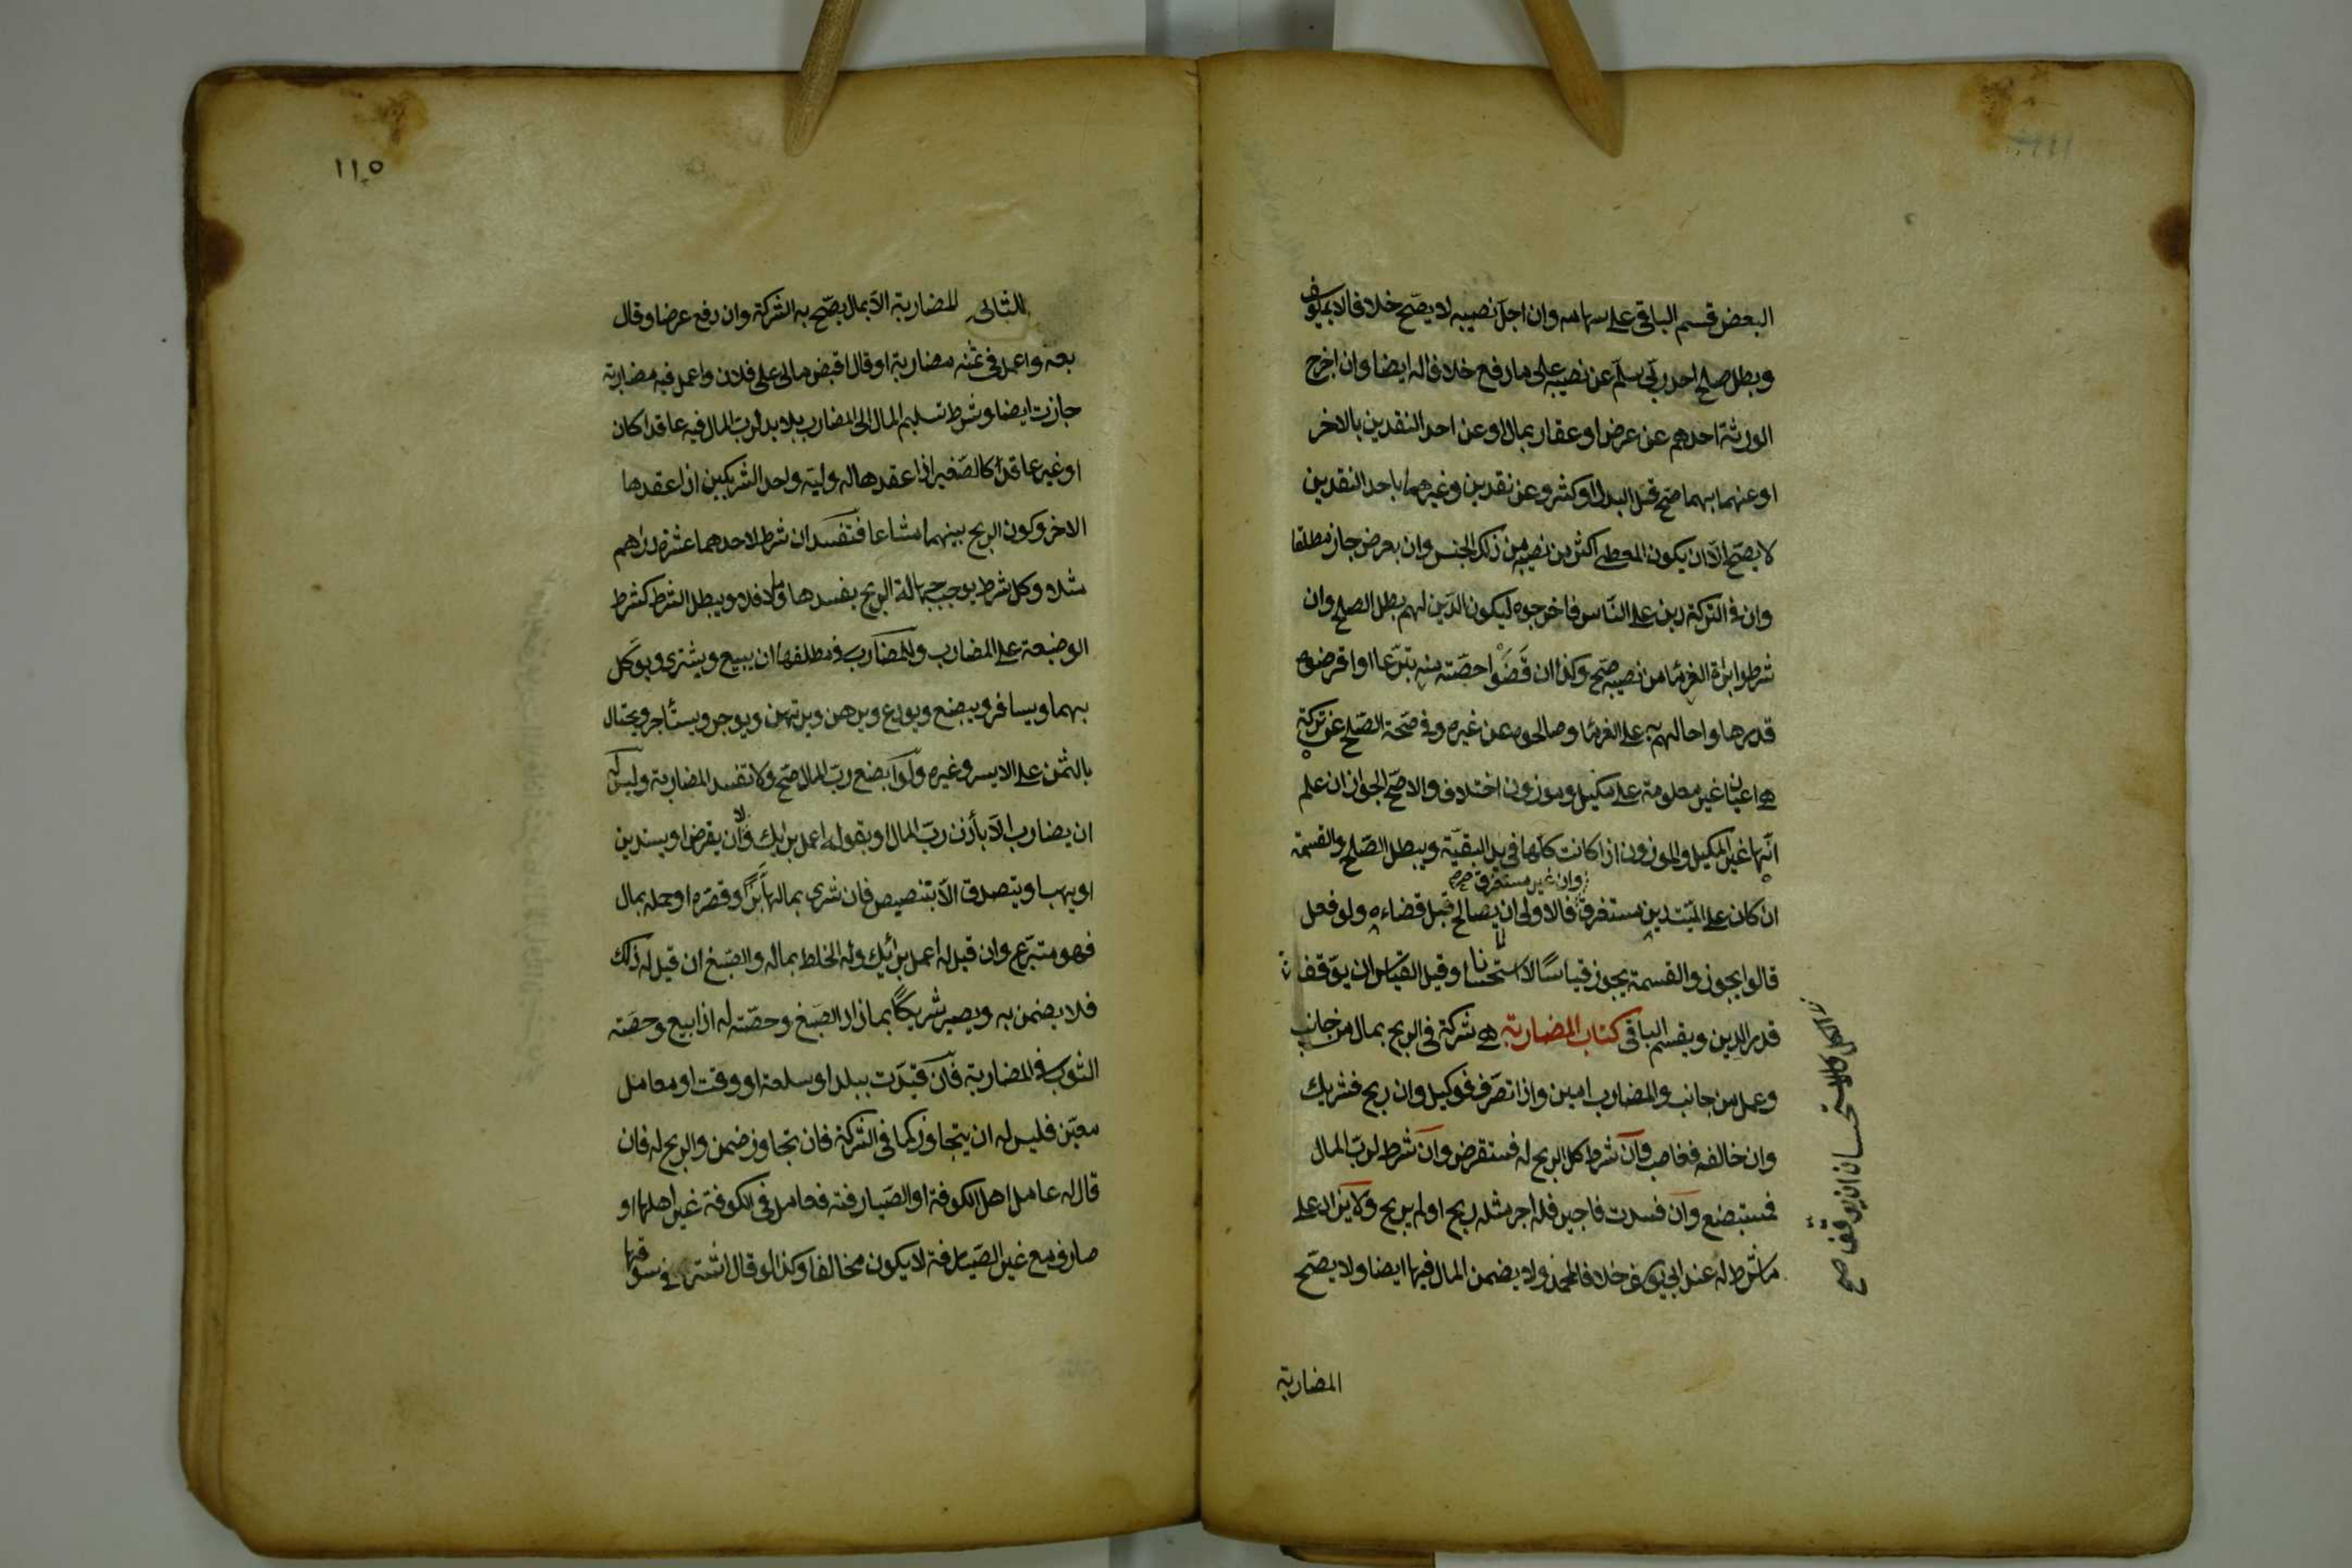 البعض قسم الباقى على سهامه وان اجل نصيبه لا يصح خلافا لابى يوسف
وبطل صلح احد ربى سلم عن نصيبه على ما دفع خلافا له ايضا وان اخرج
الورثة احدهم عن عرض او عقار بمال او عن احد النقدين بالاخر
او عنهما بهما صح قل البدل او كثر وعن نقدين وغيرهما باحد النقدين
لا يصح الا ان يكون المعطى اكثر من نصيبه من ذلك الجنس وان بعرض جاز مطلقا
وان فى التركة دين على الناس فاخرجوه ليكون الدين لهم بطل الصلح وان
شرطوا براءة الغرما من نصيبه صح وكذا ان قضوا حصته منه تبرعا او اقرضوه
قدرها واحالهم به على الغرما وصالحوه عن غيره وفى صحة الصلح عن تركة
هى اعيان غير معلومة على مكيل وموزون اختلاف والاصح الجواز ان علم
انها غير المكيل والموزون اذا كانت كلها فى يد البقية ويبطل الصلح والقسمة
وان غير مستغرق صح
ان كان على الميت دين مستغرق فالاولى ان يصالح قبل قضاءه ولو فعل
قالوا يجوز والقسمة يجوز قياسا لا استحسانا وقيل القياس ان يوقف
قدر الدين ويقسم الباقى كتاب المضاربة هى شركة فى الربح بمال من جانب
وعمل من جانب والمضارب امين واذا تصرف فوكيل وان ربح فشريك
وان خالف فغاصب وان شرط كل الربح له فمستقرض وان شرط لرب المال
فمستبضع وان فسدت فاجير فله اجر مثله ربح او لم يربح ولا يزاد على
ما شرط له عند ابى يوسف خلافا لمحمد ولا يضمن المال فيها ايضا ولا يصح
استحسان ان يوقف صح
المضاربة
١١٥
المضاربة الا بمال يصح به الشركة وان دفع عرضا وقال
بعه واعمل فى ثمنه مضاربة او قال اقبض مالى على فلان واعمل فيه مضاربة
جازت ايضا وشرط تسليم المال الى المضارب بلا يد لرب المال فيه عاقدا كان
او غير عاقد كالصغير اذا عقدها له وليه واحد الشريكين اذا عقدها
الاخر وكون الربح بينهما مشاعا فتفسد ان شرط لاحدهما عشرة دراهم
مثلا وكل شرط يوجب جهالة الربح يفسدها وما لا فلا ويبطل الشرط كشرط
الوضيعة على المضارب وللمضارب فى مطلقها ان يبيع ويشترى ويوكل
بهما ويسافر ويبضع ويودع ويرهن ويرتهن ويوجر ويستأجر ويحتال
بالثمن على الايسر وغيره ولو ابضع رب المال صح ولا تفسد المضاربة وليس له
ان يضارب الا بأذن رب المال او بقوله اعمل برايك ولا ان يقرض او يستدين
او يهب او يتصدق الا بتنصيص فان شرى بمالها بزا وقصره او حمله بمال
فهو متبرع وان قيل له اعمل برأيك وله الخلط بماله والصبغ ان قيل له ذلك
فلا يضمن به ويصير شريكا بما زاد الصبغ وحصته له اذا بيع وحصة
الثوب فى المضاربة فان قيدت ببلد او سلعة او وقت او معامل
معين فليس له ان يتجاوز كما فى الشركة فان تجاوز ضمن والربح له فان
قال له عامل اهل الكوفة او الصيارفة فعامل فى الكوفة غير اهلها او
صارف مع غير الصيارفة لا يكون مخالفا وكذا لو قال اشتر فى سوقها